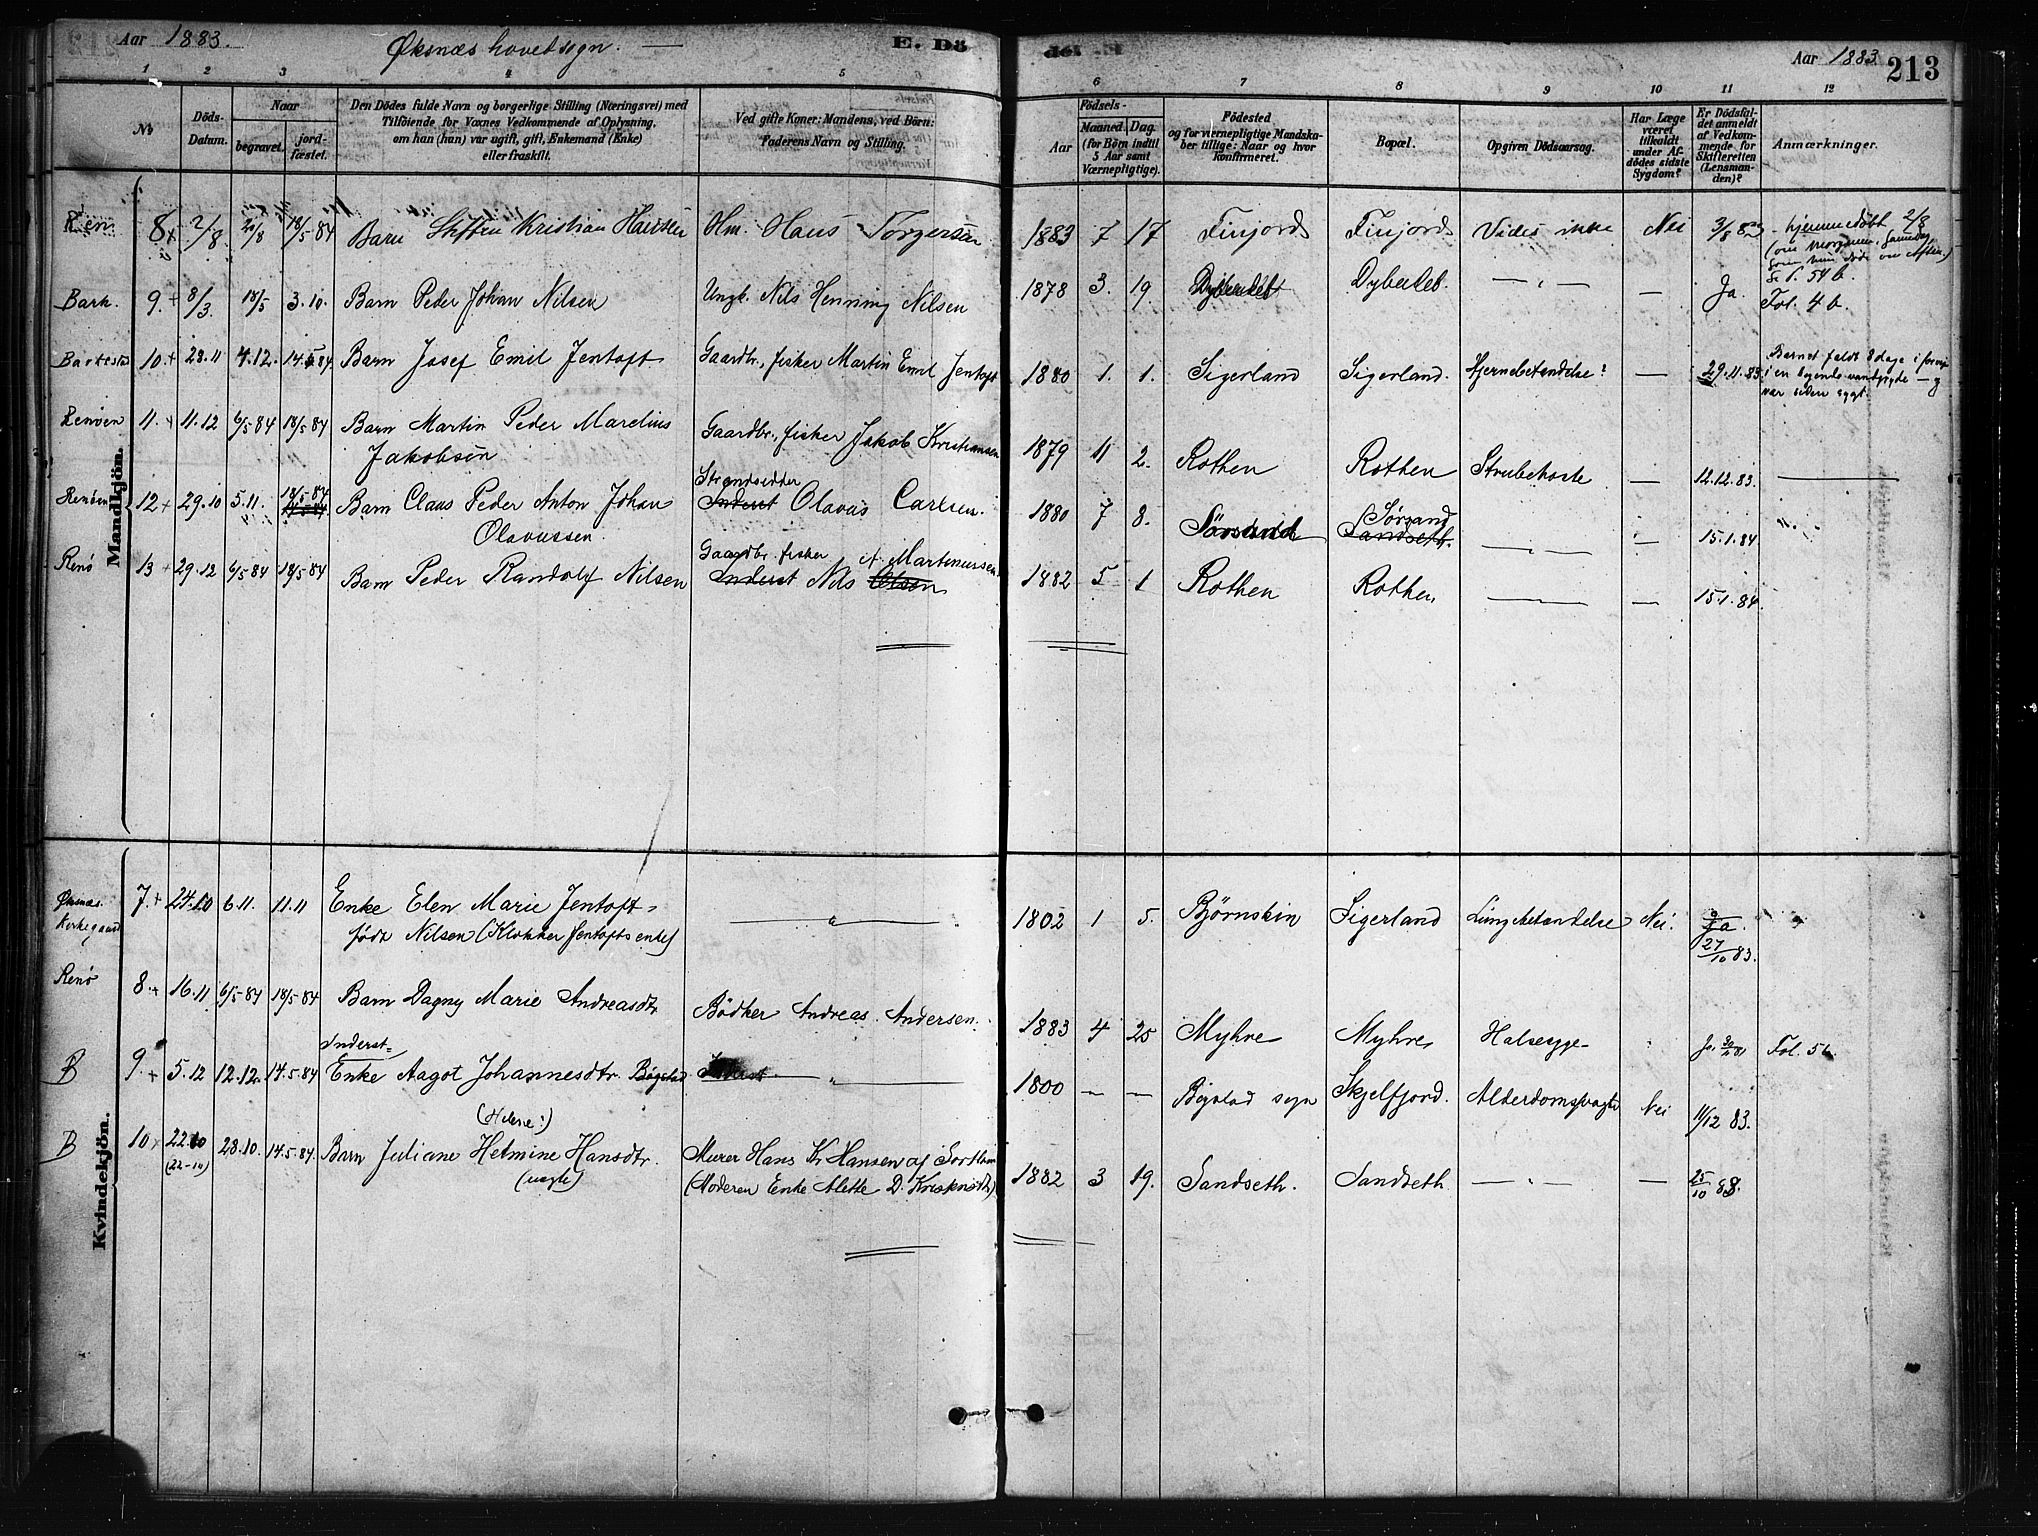 Aar 1883. Øksnæs hovedsogn. — E. Dö
1 2 3 4 5
No
Döds-Datum.
Naar
begravet.
jord-fæstet.
Den Dödes fulde Navn og borgerlige Stilling (Næringsvei) med
Tilföiende for Voxnes Vedkommende af Oplysning,
om han (hun) var ugift, gift, Enkemand (Enke)
eller fraskilt.
Ved gifte Koner: Mandens, ved Börn:
Faderens Navn og Stilling.
Mandkjön.
8 + 2/8 18/5 84 Barn Kristian Hansen Hm. Hans Torgersen
Bark. 9. + 8/3 18/5 3.10. Barn Peder Johan Nilsen Ungk. Nils Henning Nilsen
10 + 28.11 4.12. Barn Josef Emil Jentoft Gaardbr., fisker Martin Emil Jentoft
Renøen 11. + 11.12 6/5 84 18/5 84 Barn Martin Peder Marelius Gaardbr., fisker Jakob Kristiansen
Jakobsen
Strandsidder
Renøen 12 + 29.10 5.11. 18/5 84 Barn Claus Peder Anton Johan Inderst Olavus Carlsen.
Olavussen.
Gaardbr. fisker A. Martinussen
Renø 13 + 29.12 6/5 84 18/5 84 Barn Peder Randolf Nilsen Inderst Nils Olsen
Kvindekjön.
Øksnæs Kirkegaard 7. + 24.10 6.11. 11.11 Enke Elen Marie Jentoft
født Nilsen (Klokker Jentofts enke)
Renø 8. + 16.11 6/5 84 18/5 84 Barn Dagny Marie Andreasdtr Bödker Andreas Andersen.
Inderst=
B 9. + 5.12 12.12. 14.5.84 Enke Aagot Johannesdtr. Bøgstad
B 10 + 22.10 28.10. 14.5.84. Barn Juliane Helmine Hansdtr. Murer Hans Kr Hansen af Sortland
(22-10) (uægte) (Moderen Enke Alette D.
det 213
Aar 1883
6 7 8 9 10 11 12
Födsels-
Aar
Maaned. Dag.
(for Börn indtil
5 Aar samt
Værnepligtige).
Födested
og for værnepligtige Mandska-
ber tillige: Naar og hvor
konfirmeret.
Bopæl.
Opgiven Dödsaarsag.
Har Læge
været
tilkaldt
under Af-
dödes sidste
Sygdom?
Er Dödsfal-
det anmeldt
af Vedkom-
mende for
Skifteretten
(Lensman-
den)?
Anmærkninger.
1883 7 17 Finjord Finjord Vides ikke Nei 3/8 83 hjemmedöbt 2/8
(om Morgenen, Samme Dag
som hun døde om Aften.)
S. 54 b.
1878 3. 19. Dybedet — " — — Ja. Fol. 4 b.
1880 1. 1. Sigerland Sigerland. Hjernebetændelse? — 29.11.83. Barnet faldt 8 dage i forveien
i en
var siden sygt.
1879 11 2. Rothen Rothen Strubehoste — 12.12.83.
1880 7 8. Sörsand Sørsand — " — — 15.1.84
Sandseth.
1882 5 1 Rothen Rothen — " — — 15.1.84.
1802 1 5. Bjørnskin Sigerland Lungebetændelse Nei. Ja.
27/10 83.
1883 4 25 Myhre Myhre Halssyge Fol. 5
1800 — — Bøgstad sogn Skjelfjord. Alderdomssvaghed Nei 11/12 83.
1882 3 19. Sandseth. Sandseth — " — — 25/10 83.